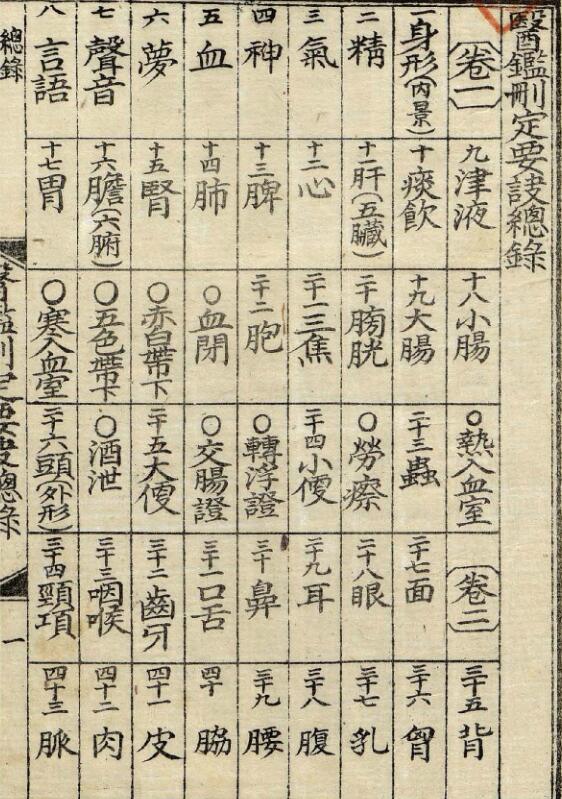 醫鑑刪定要訣總錄
卷一
一身形(內景)
二精
三氣
四神
五血
六夢
七聲音
八言語
九津液
十痰飮
十一肝(五臟)
十二心
十三脾
十四肺
十五腎
十六膽(六腑)
十七胃
十八小腸
十九大腸
二十膀胱
二十一三焦
二十二胞
○血閉
○赤白帶下
○五色帶下
○寒入血室
○熱入血室
二十三蟲
○勞瘵
二十四小便
○轉浮證
○交腸證
二十五大便
○酒泄
二十六頭(外形)
卷二
二十七面
二十八眼
二十九耳
三十鼻
三十一口舌
三十二齒牙
三十三咽喉
三十四頸項
三十五背
三十六胷
三十七乳
三十八腹
三十九腰
四十脇
四十一皮
四十二肉
四十三脈
總錄
醫鑑刪定要訣總錄
一